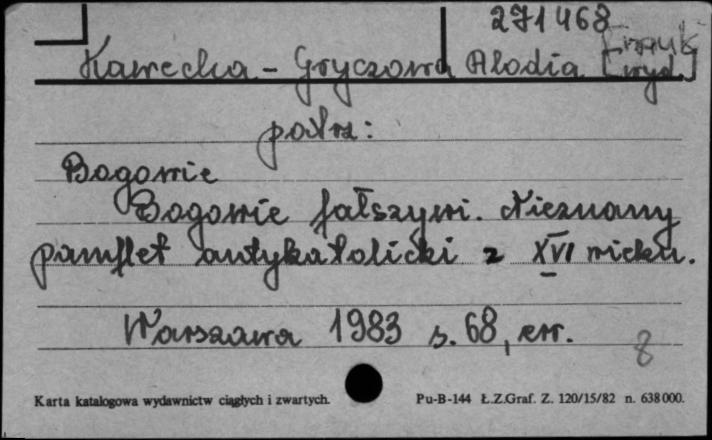 271468
Kawecka - Gryczowa Alodia [
wyd.]
patrz:
Bogowie
Bogowie fałszywi. Nieznany
pamflet antykatolicki z XVI wieku.
Warszawa 1983 s. 68, err.
8
Karta katalogowa wydawnictw ciągłych i zwartych. Pu-B-144 Ł.Z.Graf. Z. 120/15/82 n. 638000.